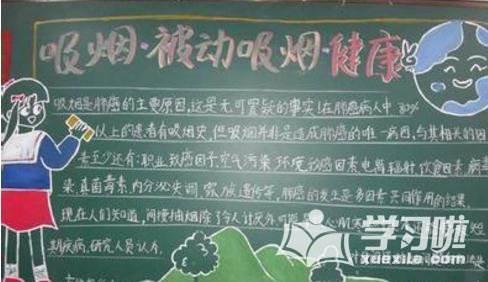 吸烟·被动吸烟·健康
吸烟是肺癌的主要原因,这是无可置疑的事实!在肺癌病人中,80%
以上的患者有吸烟史,但吸烟并非是造成肺癌的唯一病因,与其相关的因
素至少还有:职业致癌因子,空气污染,环境致癌因素,电离辐射,饮食因素,病毒
染,真菌毒素,内分泌失调,家族遗传等,肺癌的发生是多因素共同作用的结果.
现在人们知道,间接抽烟除了令人讨厌外
期疾病.研究人员认为
学习啦
xuexila.com